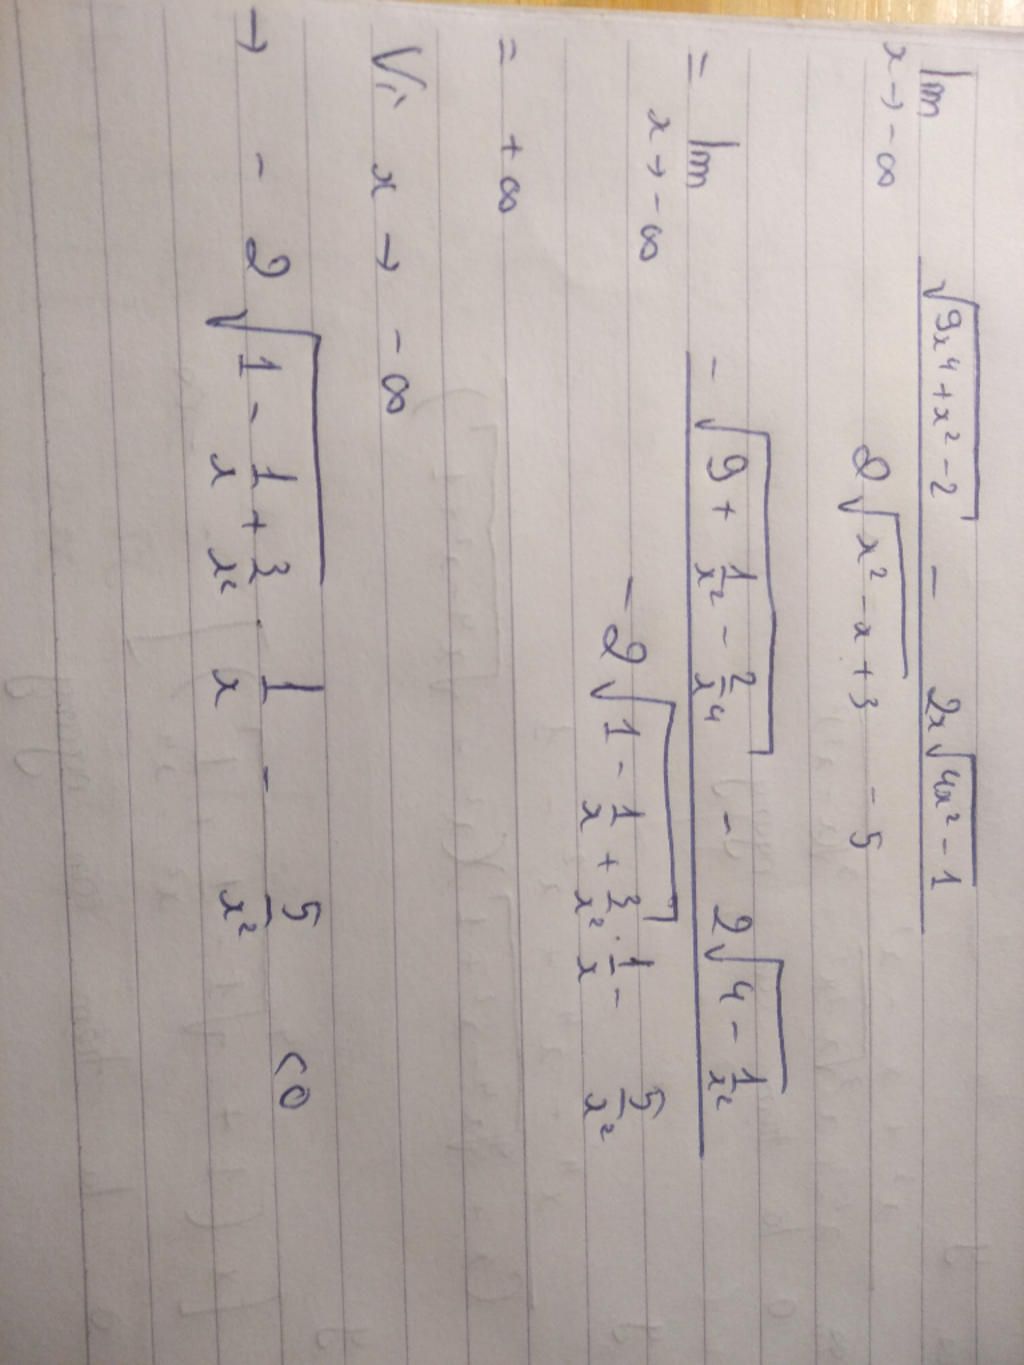 lim x → -∞ (√(9x⁴ + x² - 2) - 2x√(4x² - 1)) / (2√(x² - x + 3) - 5)
= lim x → -∞ (-√(9 + 1/x² - 2/x⁴) - 2√(4 - 1/x²)) / (-2√(1 - 1/x + 3/x²) · 1/x - 5/x²)
= +∞
Vì x → -∞
→ -2√(1 - 1/x + 3/x²) · 1/x - 5/x² < 0